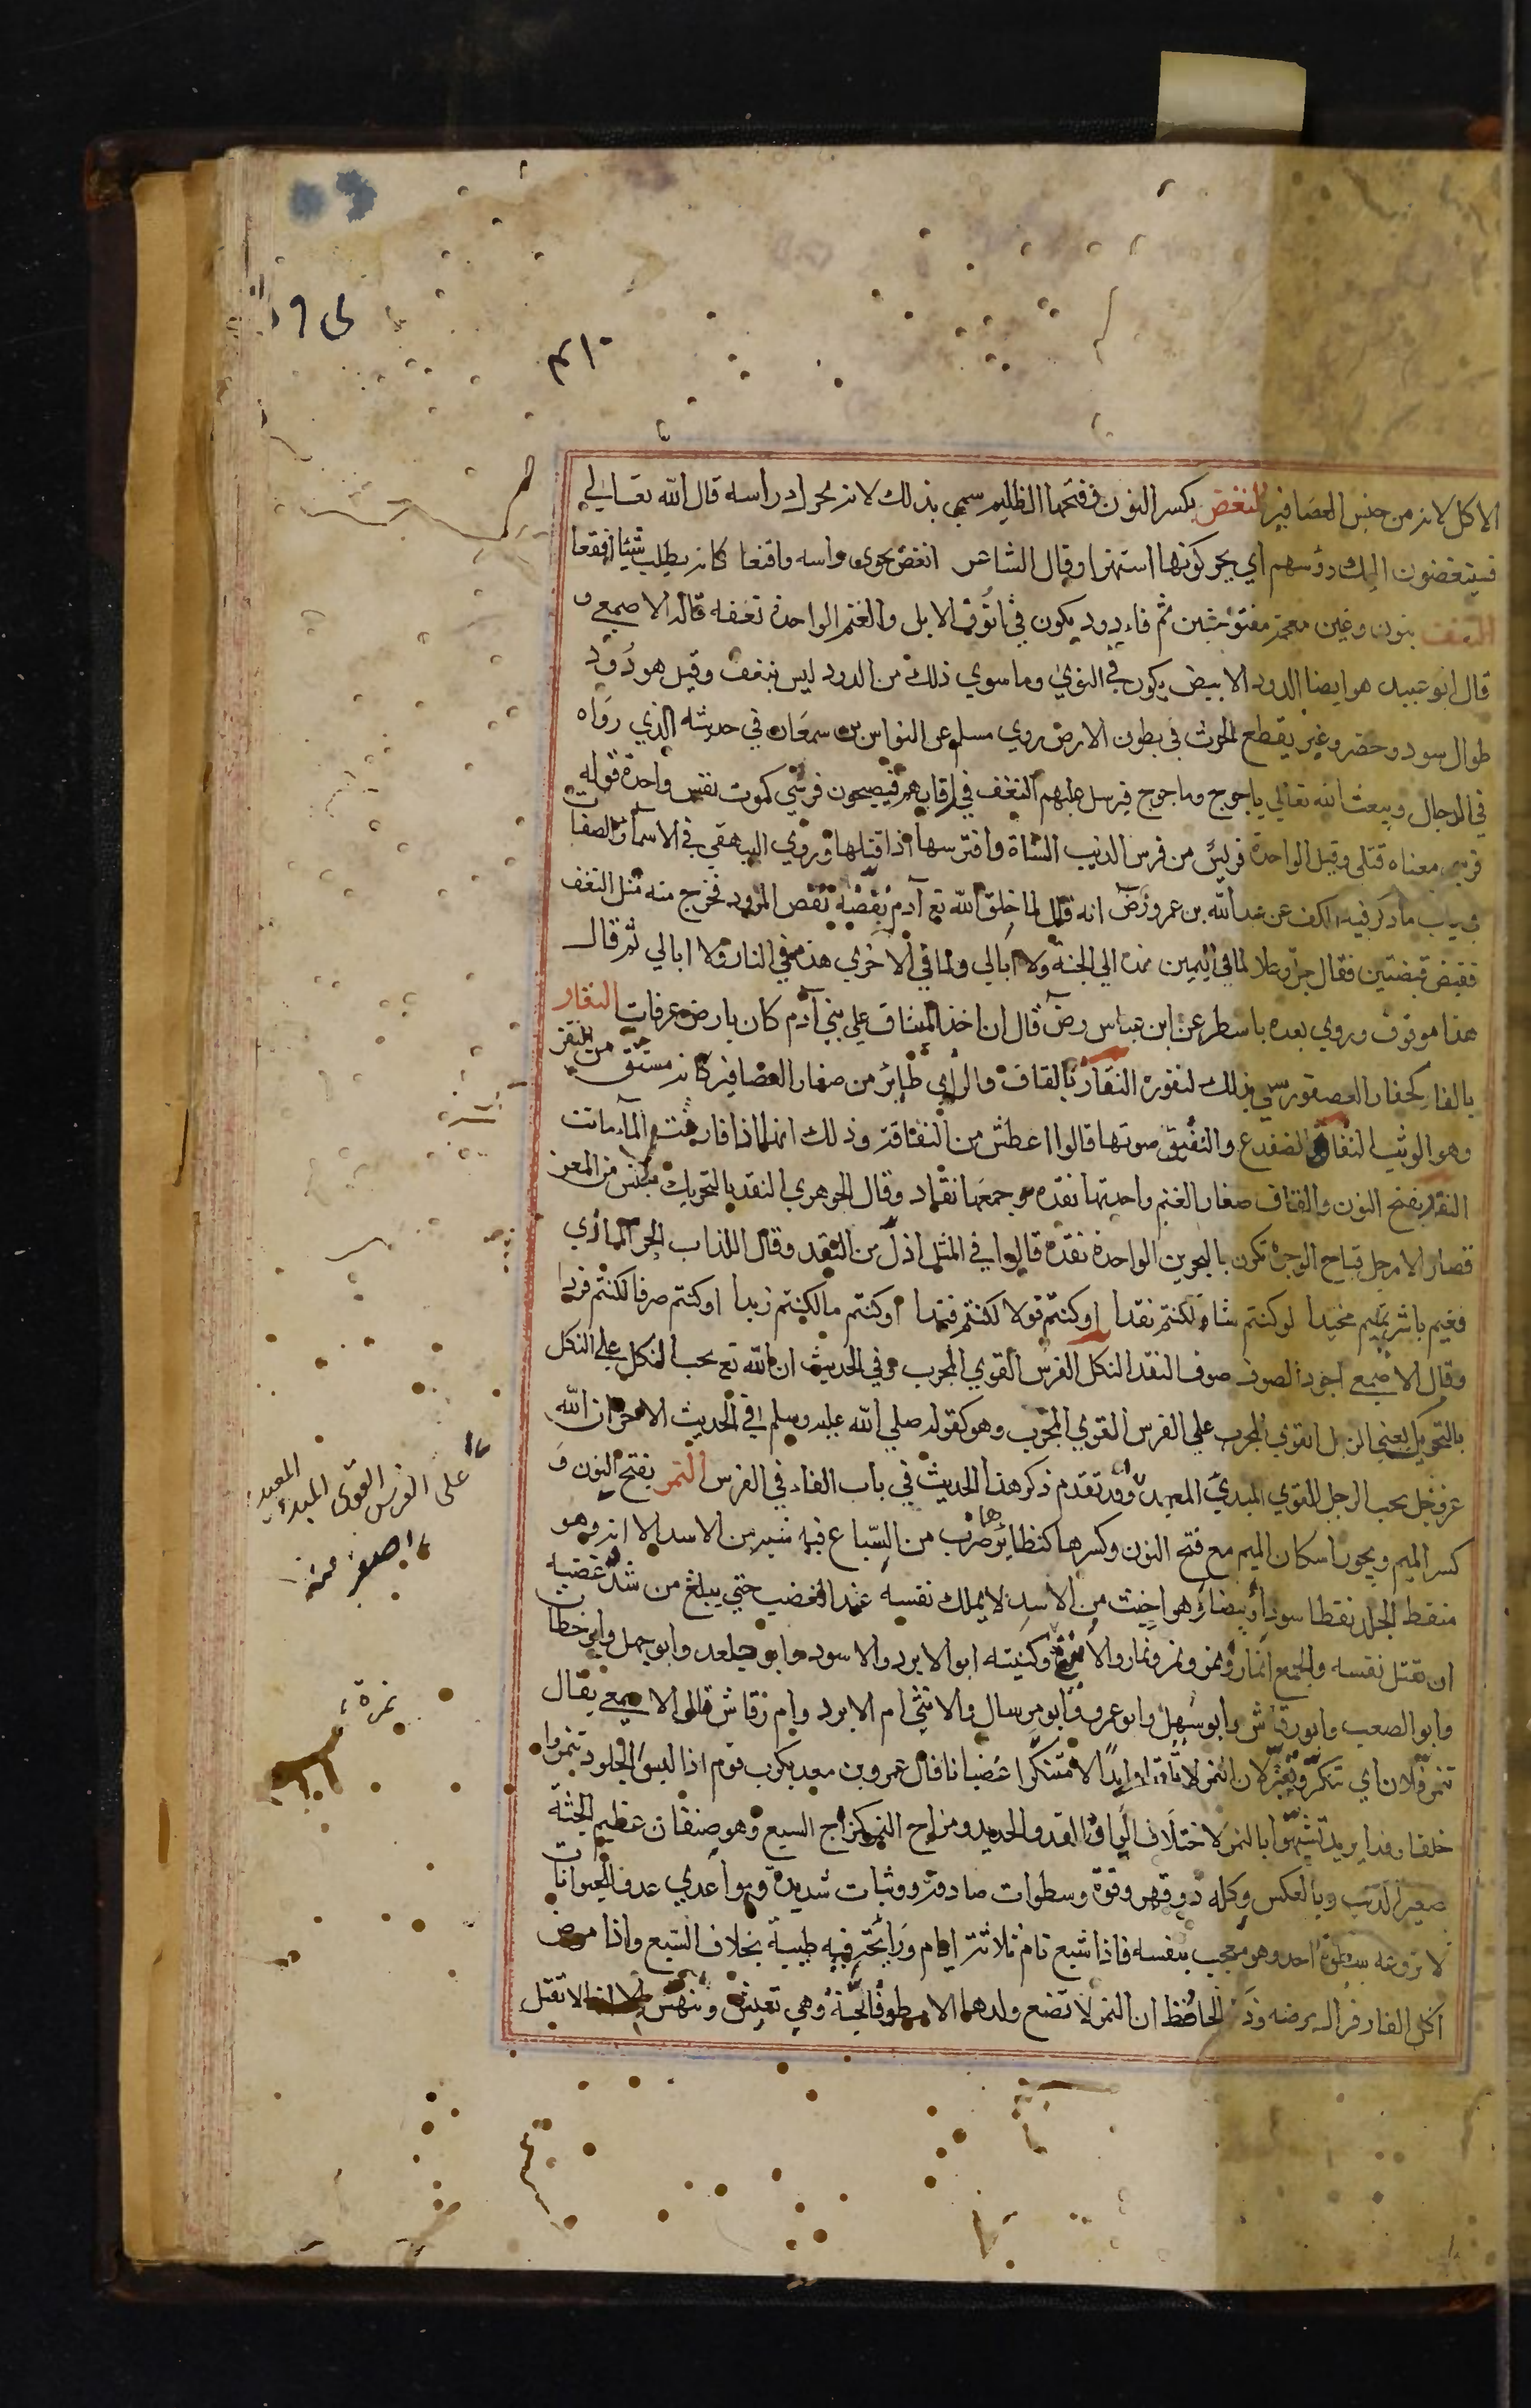 الاكل لانه من جنس العصافير النغض بكسر النون وفتحها الظليم سمي بذلك لانه يحرك راسه قال الله تعالي
فسينغضون اليك رؤسهم اي يحركونها استهزا وقال الشاعر انغض نحوي راسه واقنعا كانه يطلب شيئا اقنعا
النغف بنون وغين معجمة مفتوحتين ثم فاء دود يكون في انوف الابل والغنم الواحدة نغفه قاله الاصمعي و
قال ابو عبيد هو ايضا الدود الابيض يكون في النوي وما سوي ذلك من الدود ليس بنغف وقيل هو دود
طوال سود وخضر وغبر يقطع الحرث في بطون الارض روي مسلم عن النواس بن سمعان في حديثه الذي رواه
في الدجال ويبعث الله تعالي ياجوج وماجوج فيرسل عليهم النغف في رقابهم فيصبحون فرسي كموت نفس واحدة قوله
فرسي معناه قتلي وقيل الواحدة فريس من فرس الذيب الشاة وافترسها اذا قتلها وروي البيهقي في الاسما والصفات
في باب ما ذكر فيه الكف عن عبد الله بن عمرو رض انه قال لما خلق الله تع آدم نفضه نفض المزود فخرج منه مثل النغف
فقبض قبضتين فقال جل وعلا لما في اليمين هذه الي الجنة ولا ابالي ولما في الاخري هذه في النار ولا ابالي ثم قال
هذا موقوف وروي بعده باسطر عن ابن عباس رض قال ان اخذ الميثاق علي بني آدم كان بارض عرفات النفار
بالفاء كحفار العصفور سمي بذلك لنفوره النقاز بالقاف والزاي طائر من صغار العصافير كانه مشتق من النقز
وهو الوثب النقاقة الضفدع والنقيق صوتها قالوا اعطش من النقاقة وذلك انها اذا فارقت الماء ماتت
النقد بفتح النون والقاف صغار الغنم واحدتها نقده وجمعها نقاد وقال الجوهري النقد بالتحريك جنس من المعز
قصار الارجل قباح الوجوه تكون بالبحرين الواحدة نقدة قالوا في المثل اذل من النقد وقال الكذاب الحرمازي
فقيم يا شر تميم محتدا لو كنتم شاة لكنتم نقدا او كنتم قولا لكنتم فندا او كنتم ما لكنتم زبدا او كنتم صوفا لكنتم قردا
وقال الاصمعي اجود الصوف صوف النقد النكل الفرس القوي المجرب وفي الحديث ان الله تع يحب النكل علي النكل
بالتحريك يعني الرجل القوي المجرب علي الفرس القوي المجرب وهو كقوله صلي الله عليه وسلم في الحديث الاخر ان الله
عز وجل يحب الرجل القوي المبدئ المعيد وقد تقدم ذكر هذا الحديث في باب الفاء في الفرس النمر بفتح النون و
كسر الميم ويجوز اسكان الميم مع فتح النون وكسرها كنظائرها ضرب من السباع فيه شبه من الاسد الا انه وهو
منقط الجلد نقطا سودا وبيضا وهو اخبث من الاسد لا يملك نفسه عند الغضب حتي يبلغ من شدة غضبه
ان يقتل نفسه والجمع انمار ونمر ونمر ونمار والانثي وكنيته ابو الابرد والاسود وابو جلعد وابو جهل وابو خطاف
وابو الصعب وابو رقاش وابو سهل وابو عمرو وابو مرسال والانثي ام الابرد وام رقاش قال الاصمعي يقال
تنمر فلان اي تنكر وتغير لان النمر لا تلقاه ابدا الا متنكرا غضبانا قال عمرو بن معديكرب قوم اذا لبسوا الجلود تنمروا
خلقا وقدا يريد تشبهوا بالنمر لاختلاف الوان القد والحديد ومزاج النمر كمزاج السبع وهو صنفان عظيم الجثة
صغير الذنب وبالعكس وكله ذو قهر وقوة وسطوات صادقة ووثبات شديدة وهو اعدي عدو للحيوانات
لا تروعه سطوة احد وهو معجب بنفسه فاذا شبع نام ثلاثة ايام ورائحة فيه طيبة بخلاف السبع واذا مرض
اكل الفار فزال مرضه وذكر الحافظ ان النمرة لا تضع ولدها الا مطوقا بحية وهي تعيش وتنهش الا انها لا تقتل
على الفرس القوى المبدئ المعيد
اصغر منه
نمرة